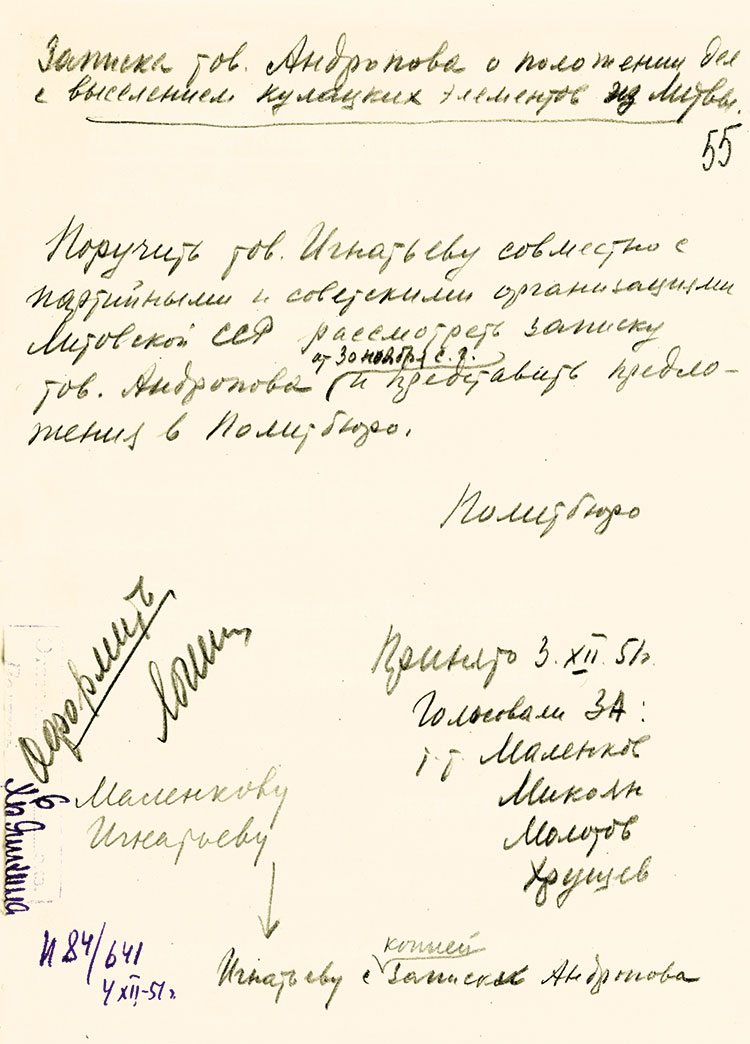 Записка тов. Андропова о положении дел
с выселением кулацких элементов из Литвы.
55
Поручить тов. Игнатьеву совместно с
партийными и советскими организациями
Литовской ССР рассмотреть записку
от 30 ноября с.г.
тов. Андропова и представить предло-
жения в Политбюро.
Политбюро
Оформить
Принято 3.XII.51г.
Голосовали ЗА:
т.т. Маленков
Микоян
Молотов
Хрущев
Маленкову
Игнатьеву
копией
Игнатьеву с записки Андропова
П84/641
4 XII-51г.